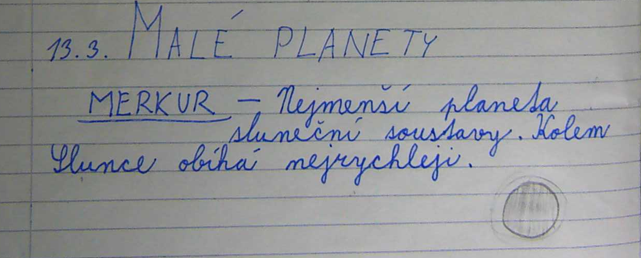 13.3. MALÉ PLANETY
MERKUR – Nejmenší planeta
sluneční soustavy. Kolem
Slunce obíhá nejrychleji.